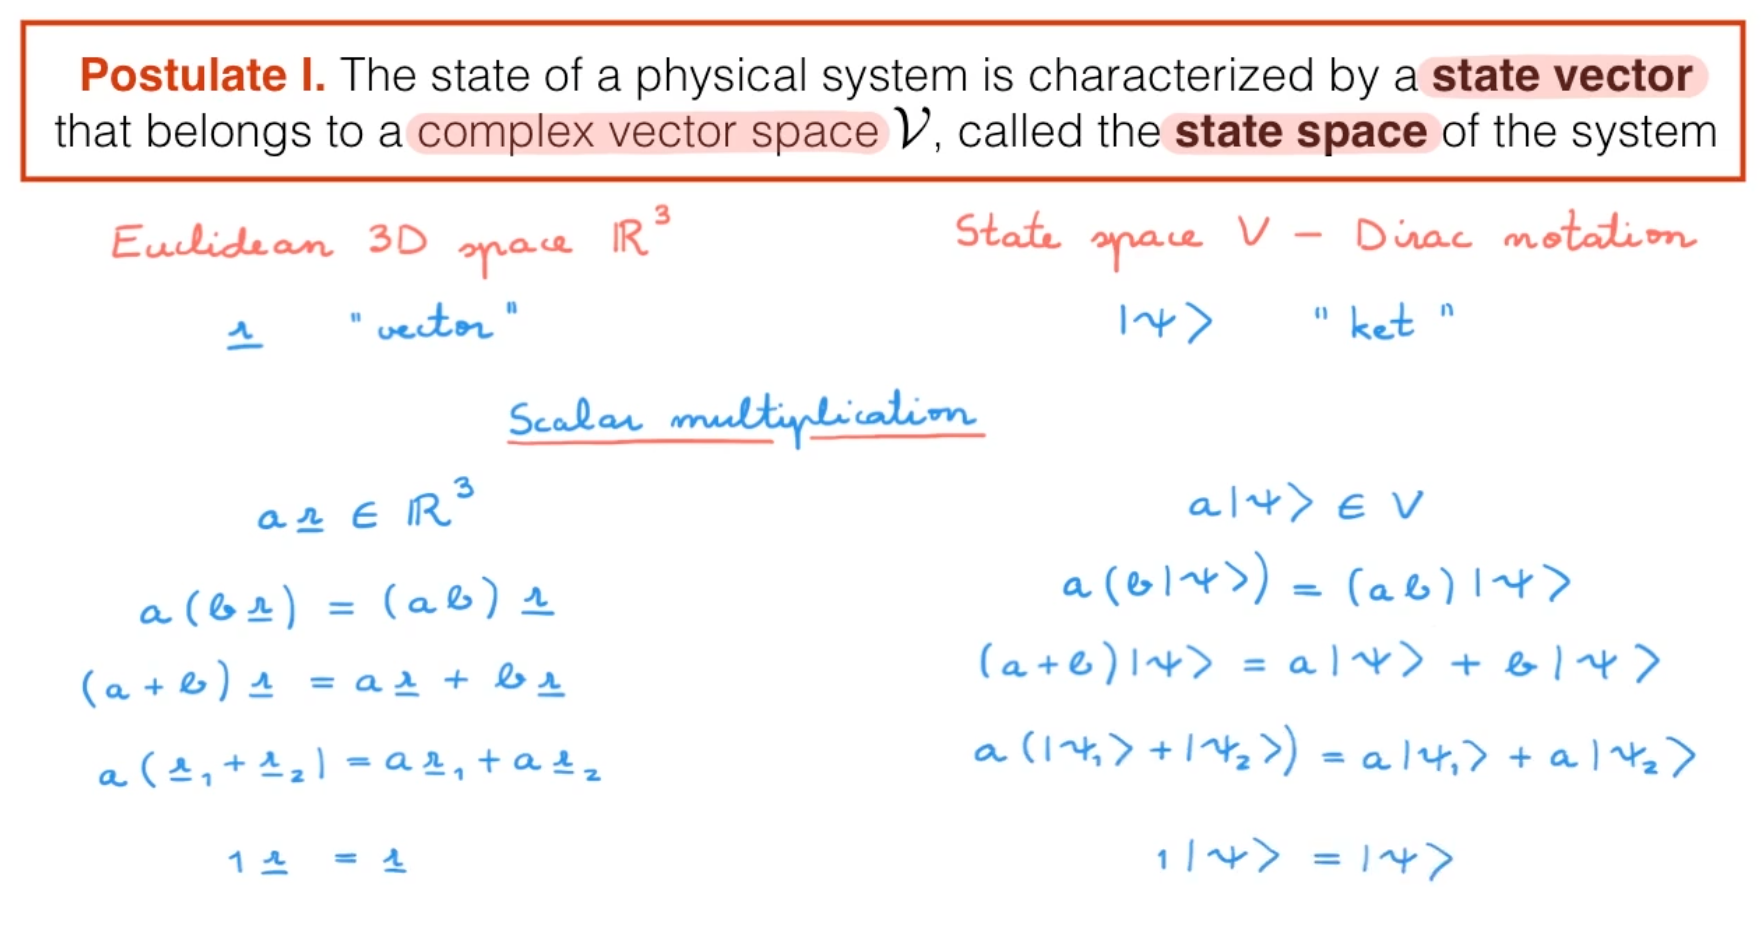 Postulate I. The state of a physical system is characterized by a state vector
that belongs to a complex vector space 𝒱, called the state space of the system
Euclidean 3D space ℝ³
State space V – Dirac notation
r "vector"
|ψ⟩ "ket"
Scalar multiplication
a r ∈ ℝ³
a|ψ⟩ ∈ V
a(b r) = (ab) r
a(b|ψ⟩) = (ab)|ψ⟩
(a + b) r = a r + b r
(a+b)|ψ⟩ = a|ψ⟩ + b|ψ⟩
a(r₁ + r₂) = a r₁ + a r₂
a(|ψ₁⟩ + |ψ₂⟩) = a|ψ₁⟩ + a|ψ₂⟩
1 r = r
1|ψ⟩ = |ψ⟩